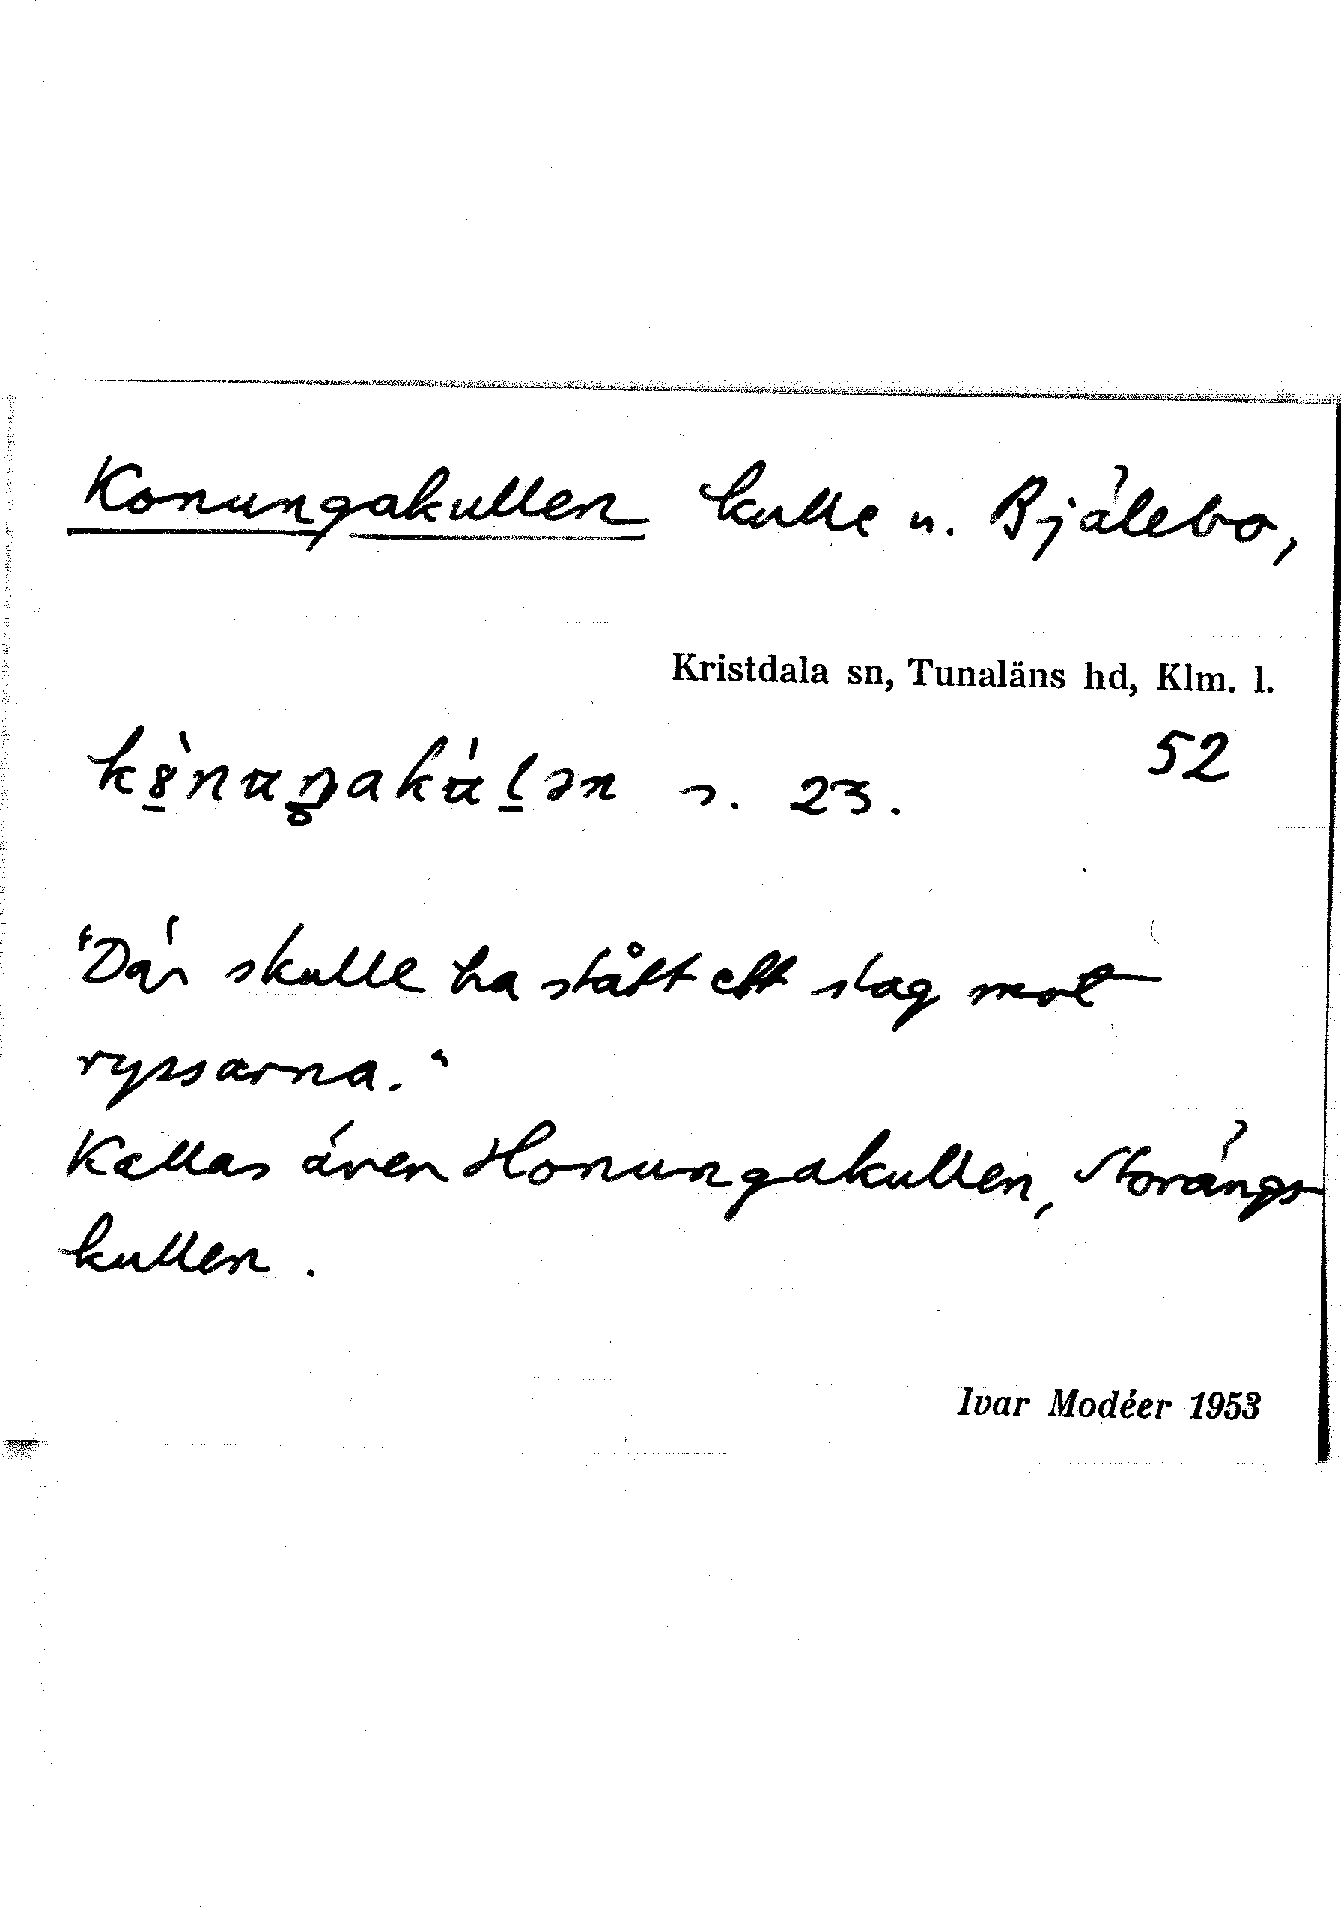 Konungakullen kulle u. Bjälebo,
Kristdala sn, Tunaläns hd, Klm. l.
52
s. 23.
"Där skulle ha stått ett slag mot
ryssarna."
Kallas även Honungakullen, Storängs
kullen.
Ivar Modéer 1953